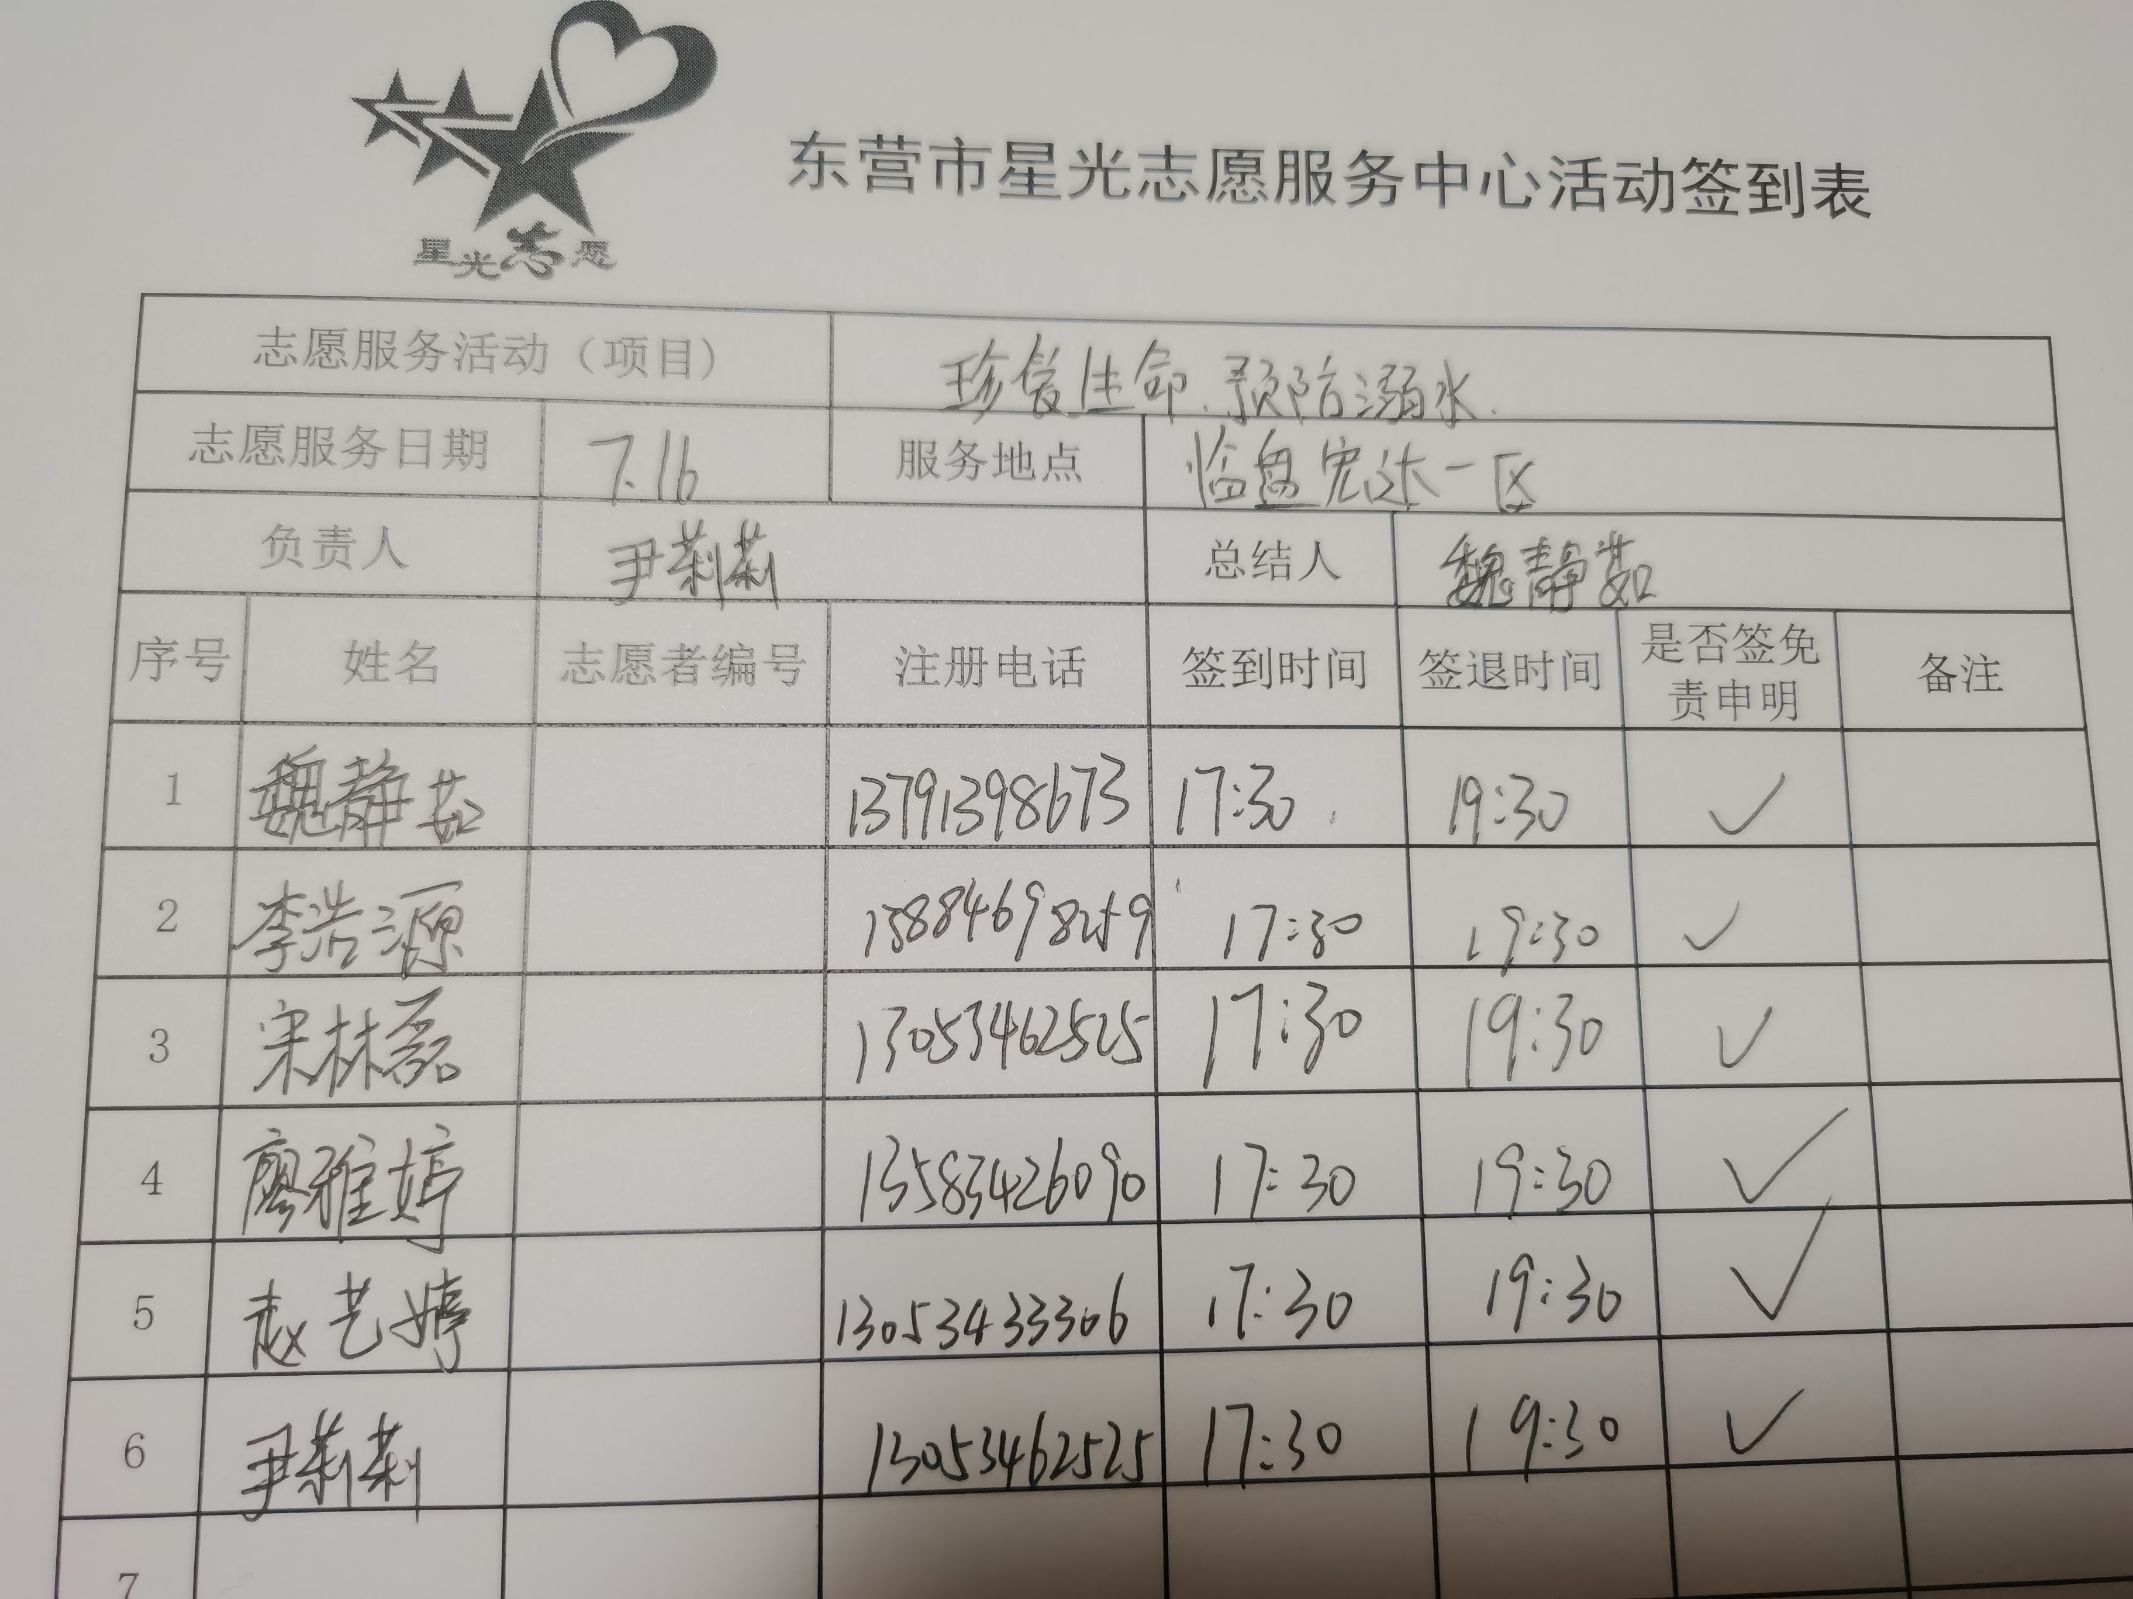 星光志愿
东营市星光志愿服务中心活动签到表
志愿服务活动（项目） 珍爱生命、预防溺水.
志愿服务日期 7.16 服务地点 临盘宏达一区
负责人 尹莉莉 总结人 魏静茹
序号 姓名 志愿者编号 注册电话 签到时间 签退时间 是否签免责申明 备注
1 魏静茹 13791398673 17:30 19:30 ✓
2 李浩源 15884698259 17:30 19:30 ✓
3 宋林磊 13053462525 17:30 19:30 ✓
4 廖雅婷 13583426090 17:30 19:30 ✓
5 赵艺婷 13053433306 17:30 19:30 ✓
6 尹莉莉 13053462525 17:30 19:30 ✓
7